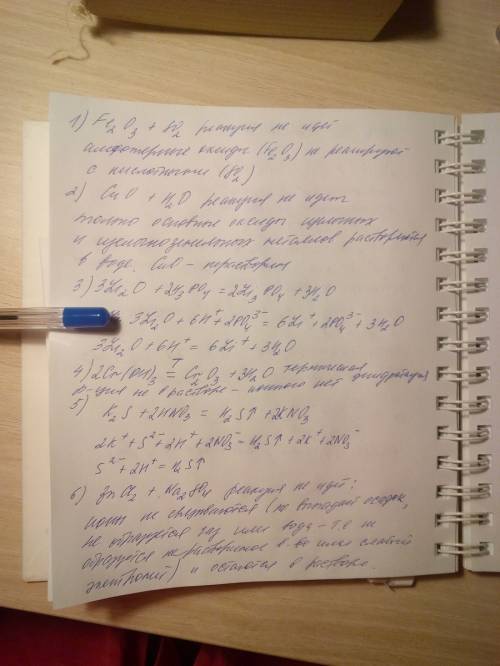 1) Fe₂O₃ + SO₂ реакция не идет
амфотерные оксиды (Fe₂O₃) не реагируют
с кислотными (SO₂)
2) CuO + H₂O реакция не идет
только основные оксиды щелочных
и щелочноземельных металлов растворяются
в воде. CuO - нерастворим
3) 3Li₂O + 2H₃PO₄ = 2Li₃PO₄ + 3H₂O
3Li₂O + 6H⁺ + 2PO₄³⁻ = 6Li⁺ + 2PO₄³⁻ + 3H₂O
3Li₂O + 6H⁺ = 6Li⁺ + 3H₂O
4) 2Cr(OH)₃ =T Cr₂O₃ + 3H₂O термическая дегидратация
р-ция не в растворе - ионного нет
5) K₂S + 2HNO₃ = H₂S↑ + 2KNO₃
2K⁺ + S²⁻ + 2H⁺ + 2NO₃⁻ = H₂S↑ + 2K⁺ + 2NO₃⁻
S²⁻ + 2H⁺ = H₂S↑
6) ZnCl₂ + Na₂SO₄ реакция не идет:
ионы не связываются (не выпадает осадок,
не образуется газ или вода - т.е не
образуется нерастворимое в-во или слабый
электролит) и остаются в растворе.